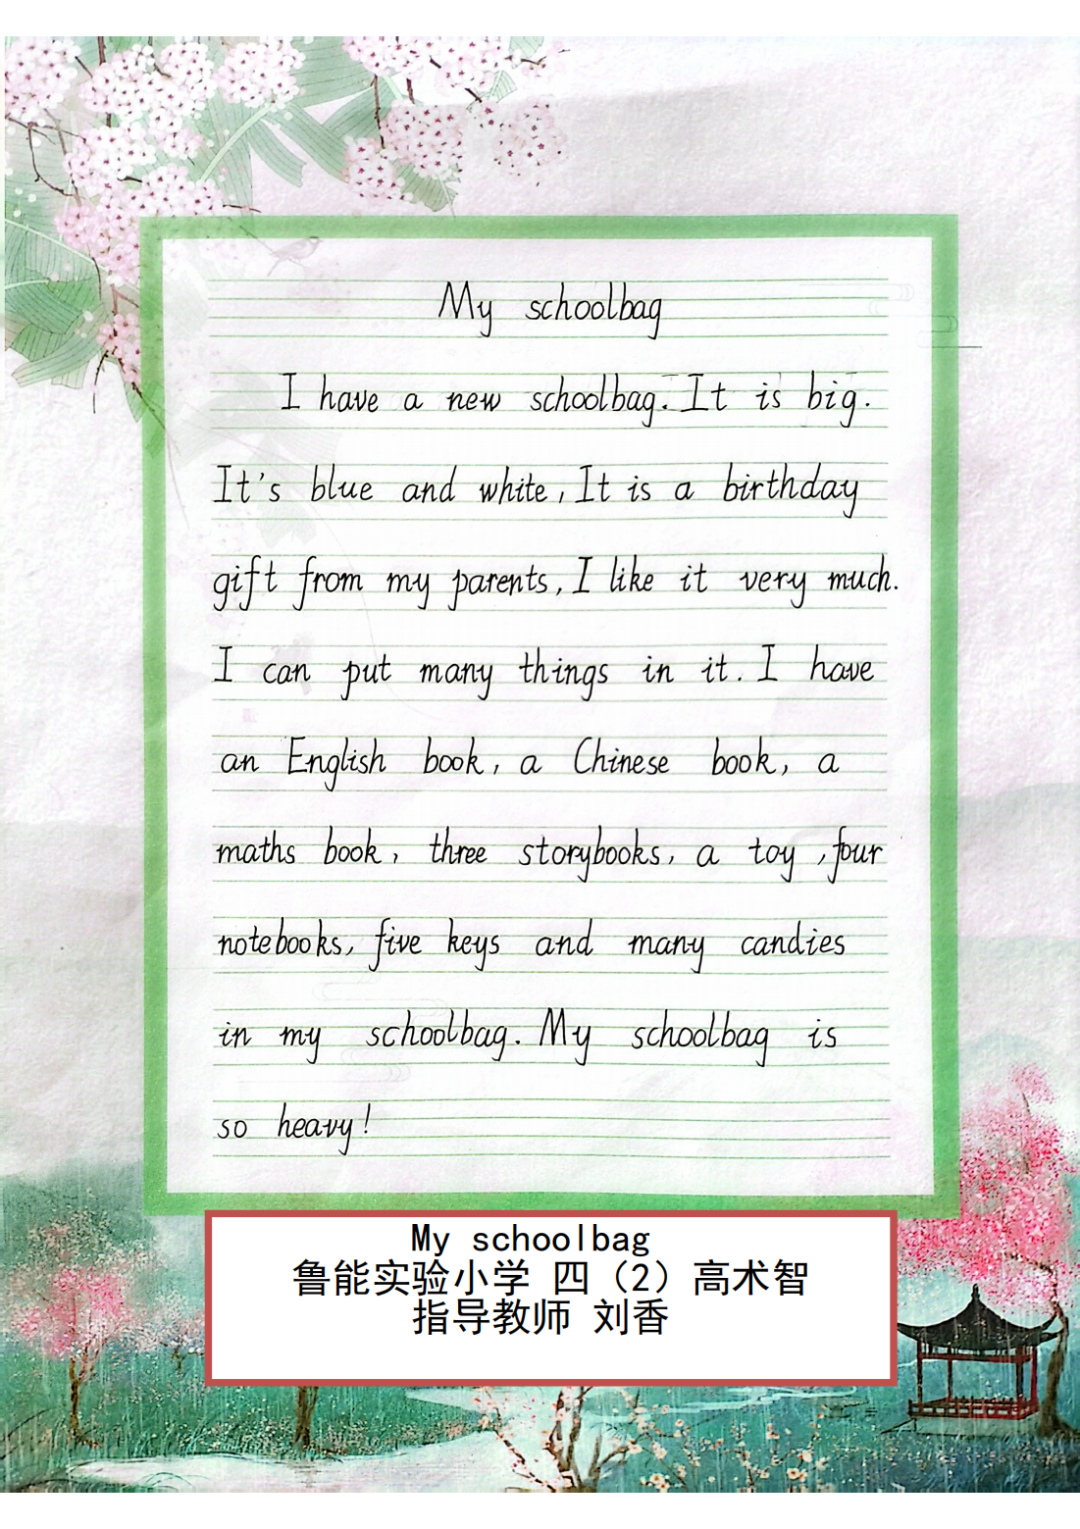 My schoolbag
I have a new schoolbag. It is big.
It's blue and white, It is a birthday
gift from my parents, I like it very much.
I can put many things in it. I have
an English book, a Chinese book, a
maths book, three storybooks, a toy ,four
notebooks, five keys and many candies
in my schoolbag. My schoolbag is
so heavy!
My schoolbag
鲁能实验小学 四（2）高术智
指导教师 刘香